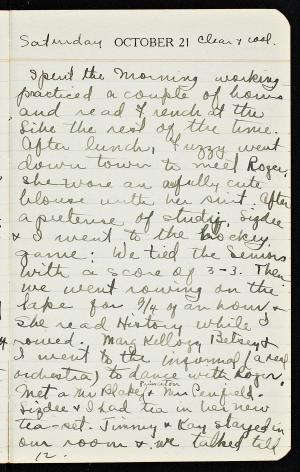 Saturday OCTOBER 21 Clear & cool.
I spent the Morning working
practiced a couple of hours
and read French at the
Libe the rest of the time.
After lunch, Fuzzy went
down town to meet Roger,
she wore an awfully cute
blouse with her suit. After
a pretense of study, Sizdee
& I went to the hockey
game: We tied the Seniors
with a score of 3-3. Then
we went rowing on the
lake for 3/4 of an hour &
she read History while I
rowed. Marg Kellogg Betsey &
I went to the informal (a real
orchestra) to dance with Roger.
Met a Mr Blake & Mr Penfield.
Princeton
Sizdee & I had tea in her new
tea-set. Jimmy & Kay stayed in
our room & we talked till
12.